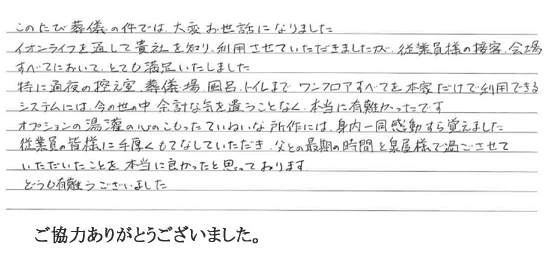 このたび葬儀の件では、大変お世話になりました
イオンライフを通して貴社を知り、利用させていただきましたが、従業員様の接客、会場
すべてにおいて、とても満足いたしました
特に通夜の控え室、葬儀場、風呂、トイレまで ワンフロアすべてを本家だけで利用できる
システムには、今の世の中 余計な気を遣うことなく、本当に有難かったです
オプションの湯灌の心のこもったていねいな所作には、身内一同感動すら覚えました
従業員の皆様に手厚くもてなしていただき、父との最期の時間を泉屋様で過ごさせて
いただいたことを 本当に良かったと思っております
どうも有難うございました
ご協力ありがとうございました。